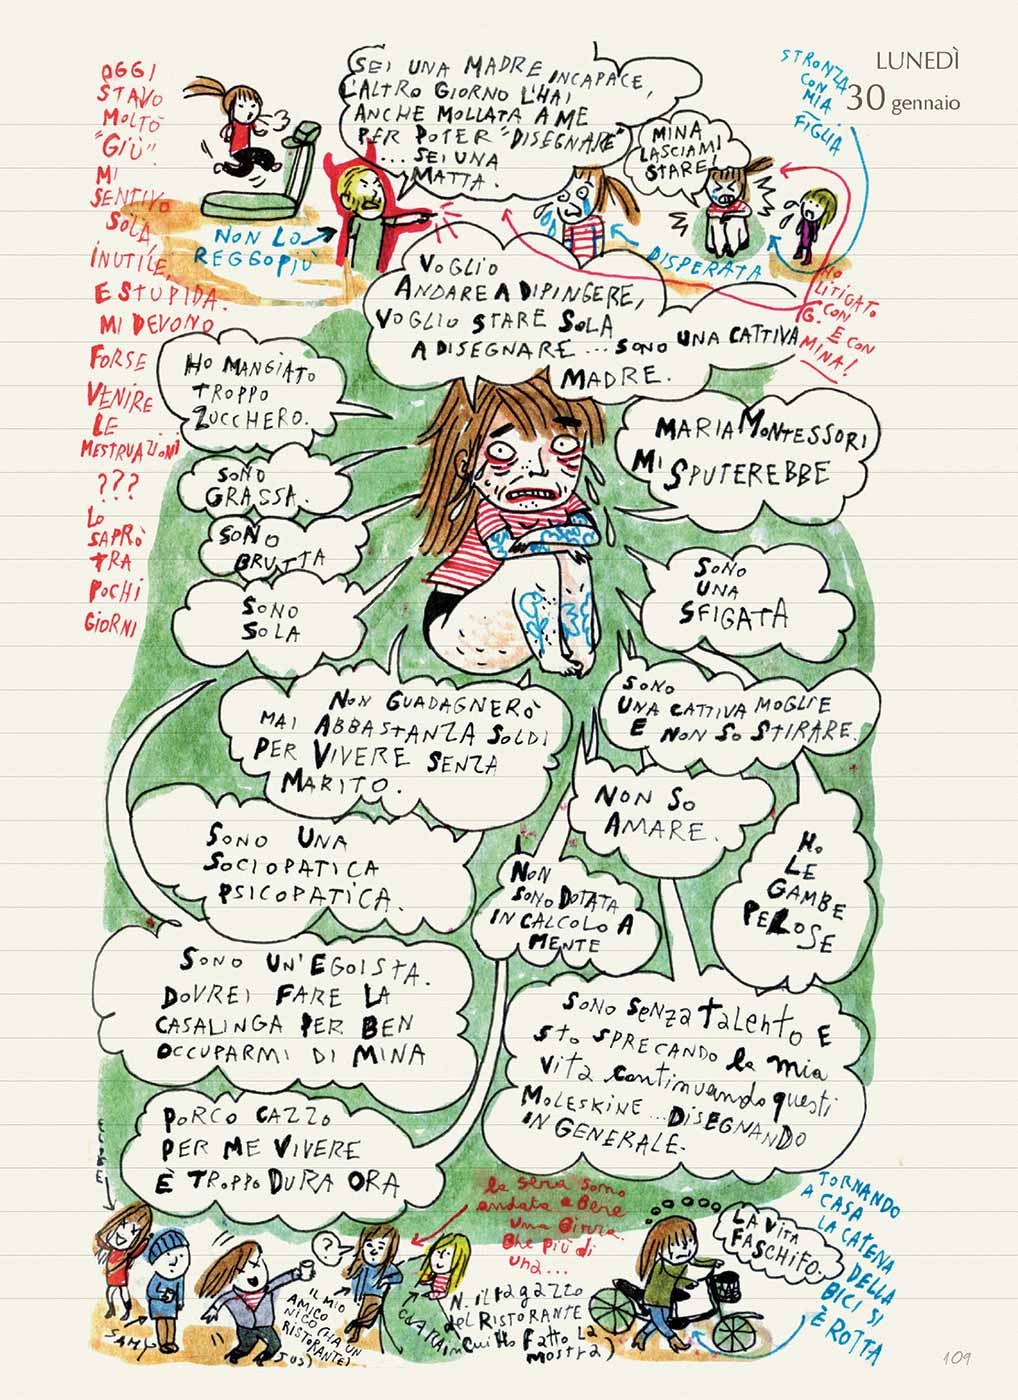 LUNEDÌ
30 gennaio
OGGI
STAVO
MOLTO
"GIÙ".
MI
SENTIVO
SOLA,
INUTILE,
E STUPIDA.
MI DEVONO
FORSE
VENIRE
LE
MESTRUAZIONI
???
LO
SAPRÒ
TRA
POCHI
GIORNI
SEI UNA MADRE INCAPACE,
L'ALTRO GIORNO L'HAI
ANCHE MOLLATA A ME
PER POTER "DISEGNARE"
... SEI UNA
MATTA.
MINA
LASCIAMI
STARE!
STRONZA
CON
MIA
FIGLIA
NON LO
REGGO PIÙ
DISPERATA
HO
LITIGATO
CON
G. E CON
MINA!
VOGLIO
ANDARE A DIPINGERE,
VOGLIO STARE SOLA
A DISEGNARE ... SONO UNA CATTIVA
MADRE.
HO MANGIATO
TROPPO
ZUCCHERO.
MARIA MONTESSORI
MI SPUTEREBBE
SONO
GRASSA.
SONO
BRUTTA
SONO
SOLA
SONO
UNA
SFIGATA
NON GUADAGNERÒ
MAI ABBASTANZA SOLDI
PER VIVERE SENZA
MARITO.
SONO
UNA CATTIVA MOGLIE
E NON SO STIRARE.
NON SO
AMARE.
HO
LE
GAMBE
PELOSE
SONO UNA
SOCIOPATICA
PSICOPATICA.
NON
SONO DOTATA
IN CALCOLO A
MENTE
SONO UN'EGOISTA.
DOVREI FARE LA
CASALINGA PER BEN
OCCUPARMI DI MINA
SONO SENZA TALENTO E
STO SPRECANDO la mia
vita continuando questi
MOLESKINE ... DISEGNANDO
IN GENERALE.
PORCO CAZZO
PER ME VIVERE
È TROPPO DURA ORA
la sera sono
andata a bere
una birra.
Che più di
una...
?
SAMY
IL MIO
AMICO
NICO (HA UN
RISTORANTE)
N. il ragazzo
del RISTORANTE
in cui ho fatto la
mostra)
LA VITA
FA SCHIFO.
TORNANDO
A CASA
LA CATENA
DELLA
BICI SI
È ROTTA
109